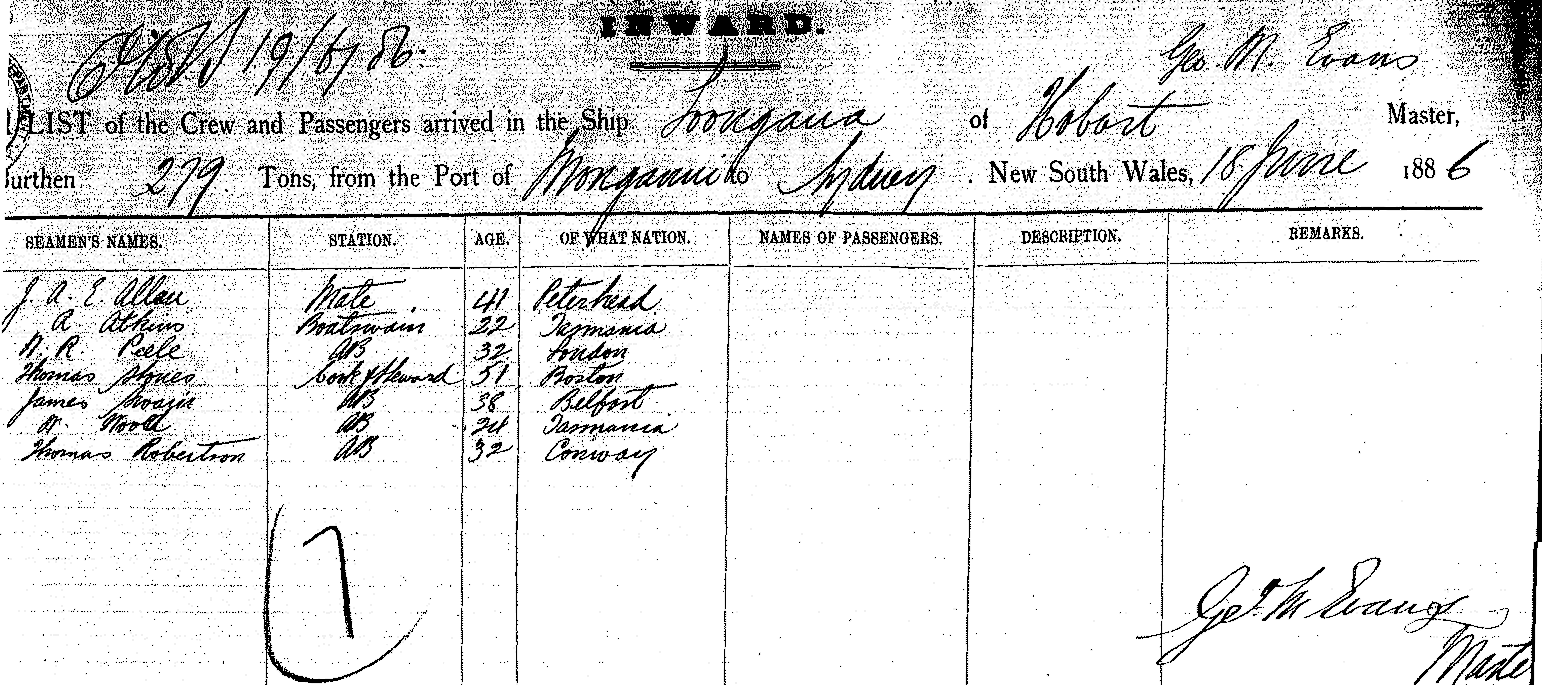 INWARD.
19/6/86.
Geo. M. Evans
LIST of the Crew and Passengers arrived in the Ship Loongana of Hobart Master,
Burthen 279. Tons, from the Port of Mongonui to Sydney. New South Wales, 18 June 1886
SEAMEN'S NAMES. STATION. AGE. OF WHAT NATION. NAMES OF PASSENGERS. DESCRIPTION. REMARKS.
J. A. E. Allan Mate 41 Peterhead
A Atkins Boatswain 22 Tasmania
W. R. Peele AB 32 London
Thomas Stones Cook & Steward 51 Boston
James AB 38 Belfast
W. Wood AB 24 Tasmania
Thomas Robertson AB 32 Conway
7
Geo M Evans
Master